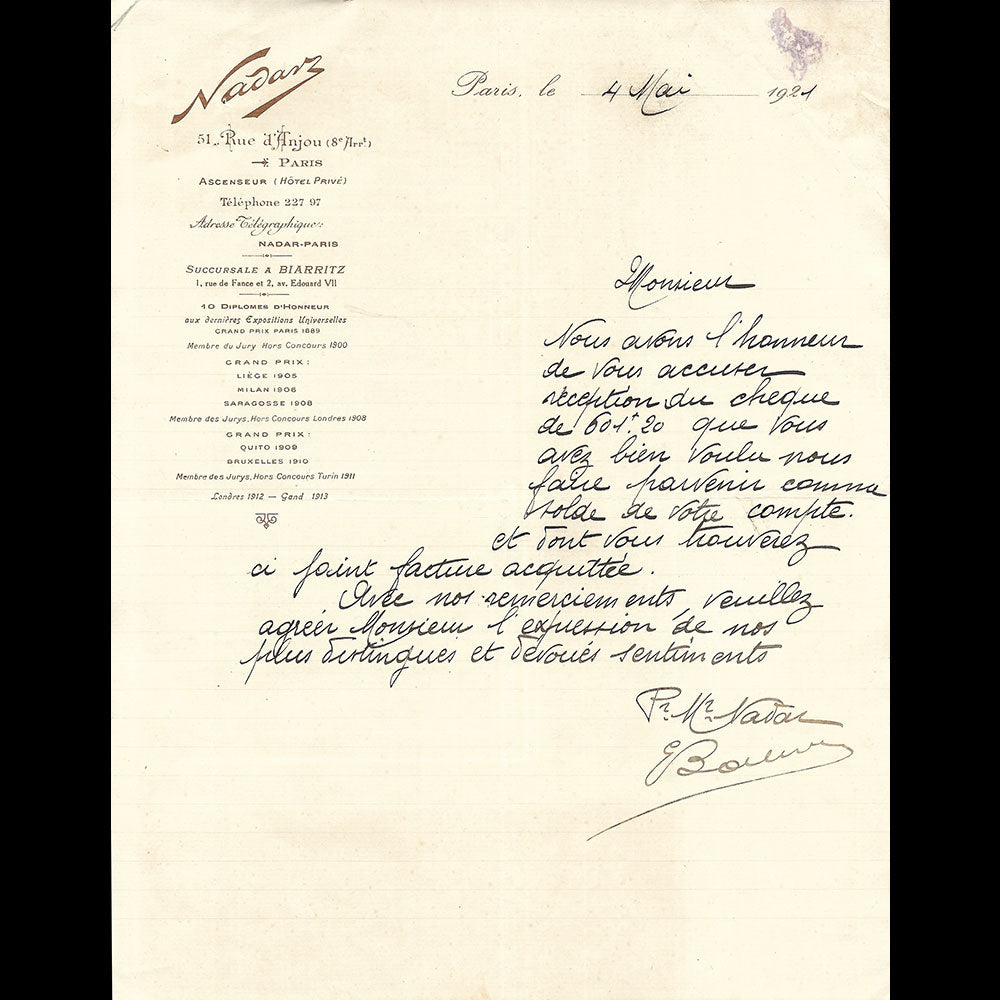 Nadar
51, Rue d'Anjou (8e Arrt)
PARIS
ASCENSEUR (HÔTEL PRIVÉ)
Téléphone 227 97
Adresse Télégraphique:
NADAR-PARIS
SUCCURSALE A BIARRITZ
1, rue de Fance et 2, av. Edouard VII
10 DIPLOMES D'HONNEUR
aux dernières Expositions Universelles
GRAND PRIX PARIS 1889
Membre du Jury Hors Concours 1900
GRAND PRIX:
LIÈGE 1905
MILAN 1906
SARAGOSSE 1908
Membre des Jurys, Hors Concours Londres 1908
GRAND PRIX:
QUITO 1909
BRUXELLES 1910
Membre des Jurys, Hors Concours Turin 1911
Londres 1912 — Gand 1913
Paris, le 4 Mai 1921
Monsieur
Nous avons l'honneur
de vous accuser
réception du chèque
de 601f.20 que vous
avez bien voulu nous
faire parvenir comme
solde de votre compte.
et dont vous trouverez
ci joint facture acquittée.
Avec nos remerciements veuillez
agréer Monsieur l'expression de nos
plus distingués et dévoués sentiments
Pr. Mr. Nadar